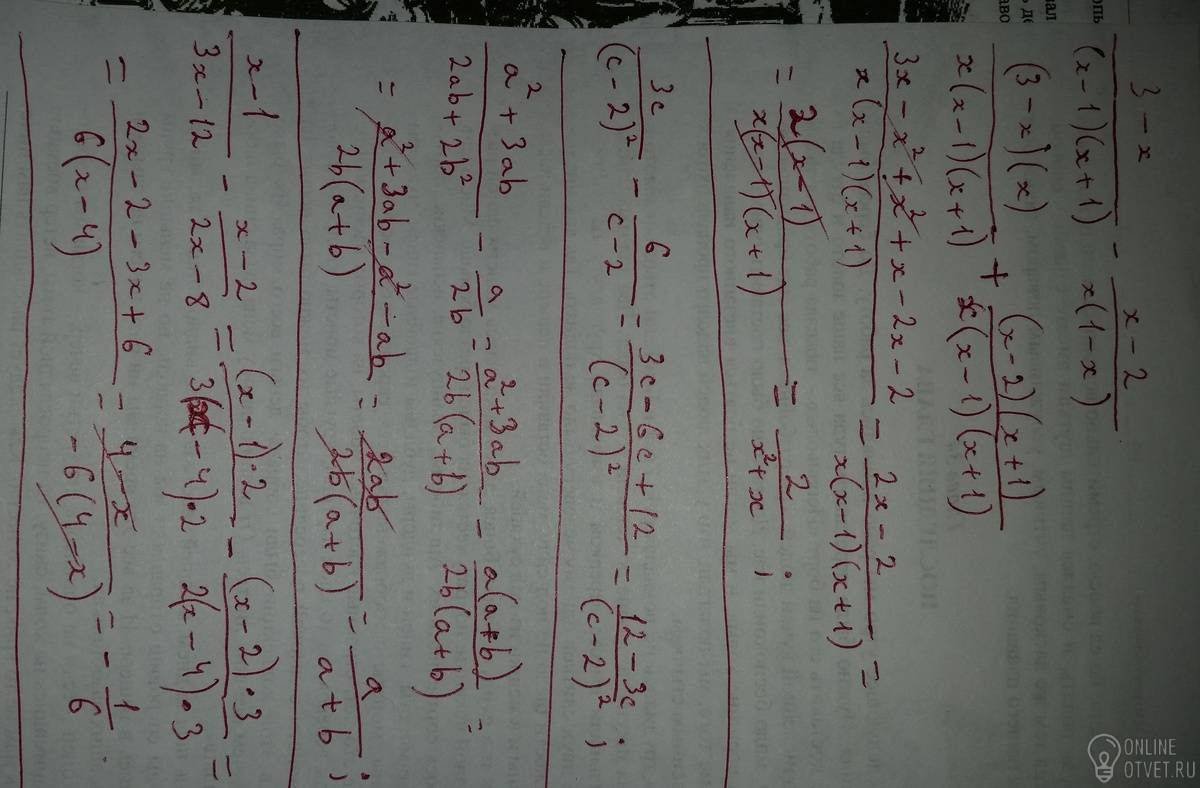 3-x / (x-1)(x+1) - x-2 / x(1-x)
(3-x)(x) / x(x-1)(x+1) + (x-2)(x+1) / x(x-1)(x+1)
3x-x²+x²+x-2x-2 / x(x-1)(x+1) = 2x-2 / x(x-1)(x+1) =
= 2(x-1) / x(x-1)(x+1) = 2 / x²+x ;
3c / (c-2)² - 6 / c-2 = 3c-6c+12 / (c-2)² = 12-3c / (c-2)² ;
a²+3ab / 2ab+2b² - a / 2b = a²+3ab / 2b(a+b) - a(a+b) / 2b(a+b) =
= a²+3ab-a²-ab / 2b(a+b) = 2ab / 2b(a+b) = a / a+b ;
x-1 / 3x-12 - x-2 / 2x-8 = (x-1)·2 / 3(x-4)·2 - (x-2)·3 / 2(x-4)·3 =
= 2x-2-3x+6 / 6(x-4) = 4-x / -6(4-x) = - 1 / 6 .
ONLINE
OTVET.RU